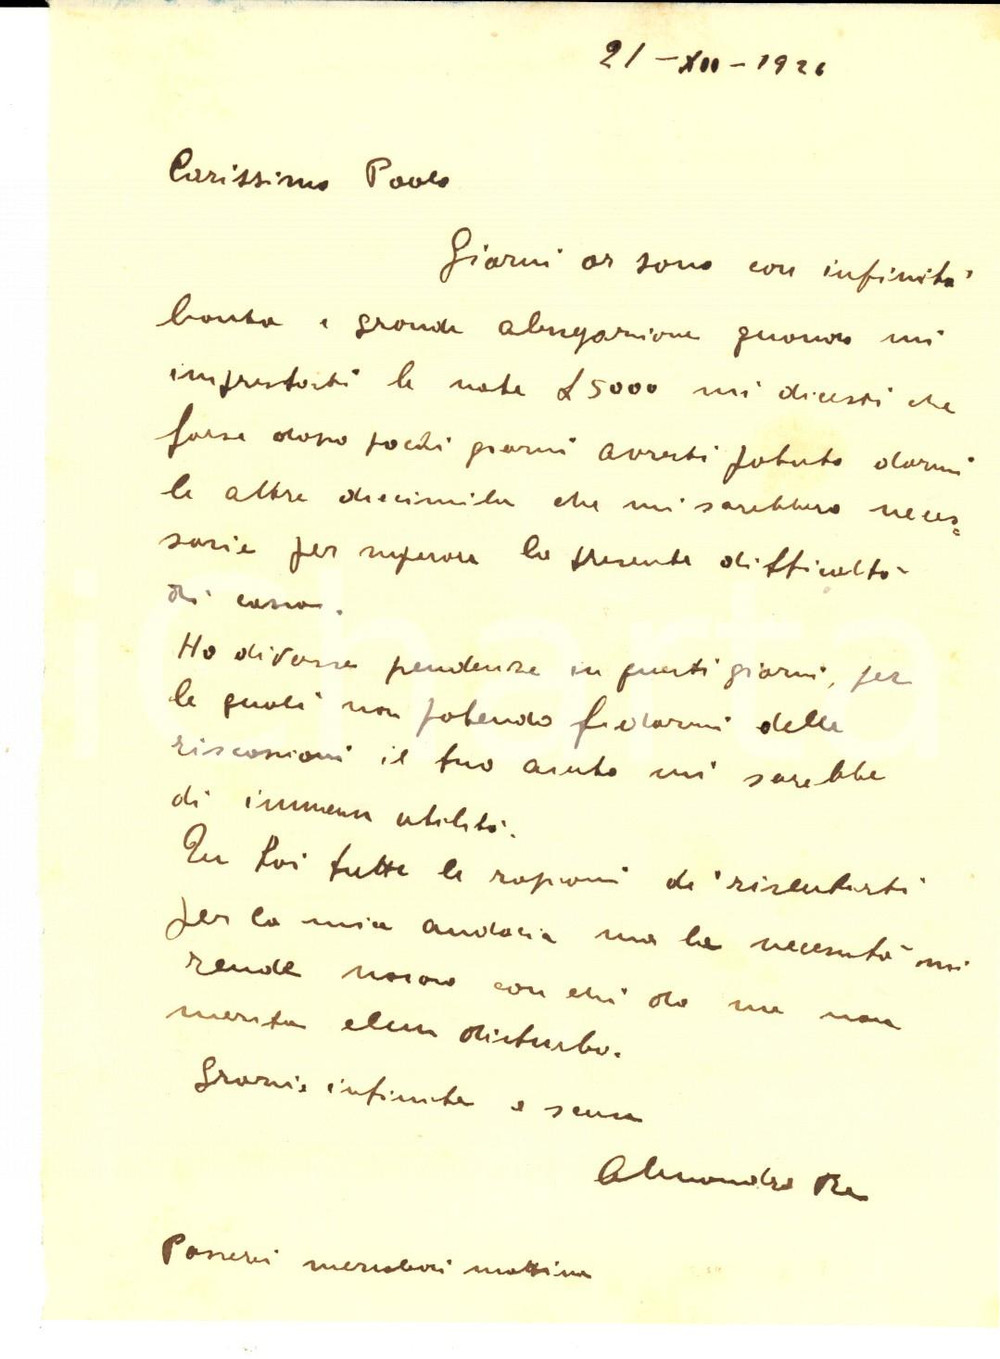 21-XII-1926
Carissimo Paolo
Giorni or sono con infinita
bonta e grande abnegazione quando mi
imprestasti le note £ 5000 mi dicesti che
forse dopo pochi giorni avresti potuto darmi
le altre diecimila che mi sarebbero neces=
sarie per superare la presente difficoltà
di cassa.
Ho diverse pendenze in questi giorni, per
le quali non potendo fidarmi delle
riscossioni il tuo aiuto mi sarebbe
di immensa utilità.
Tu hai tutte le ragioni di risentirti
per la mia audacia ma la necessità mi
rende noioso con chi da me non
merita alcun disturbo.
Grazie infinite e scusa
Alessandro
Passerei mercoledi mattina